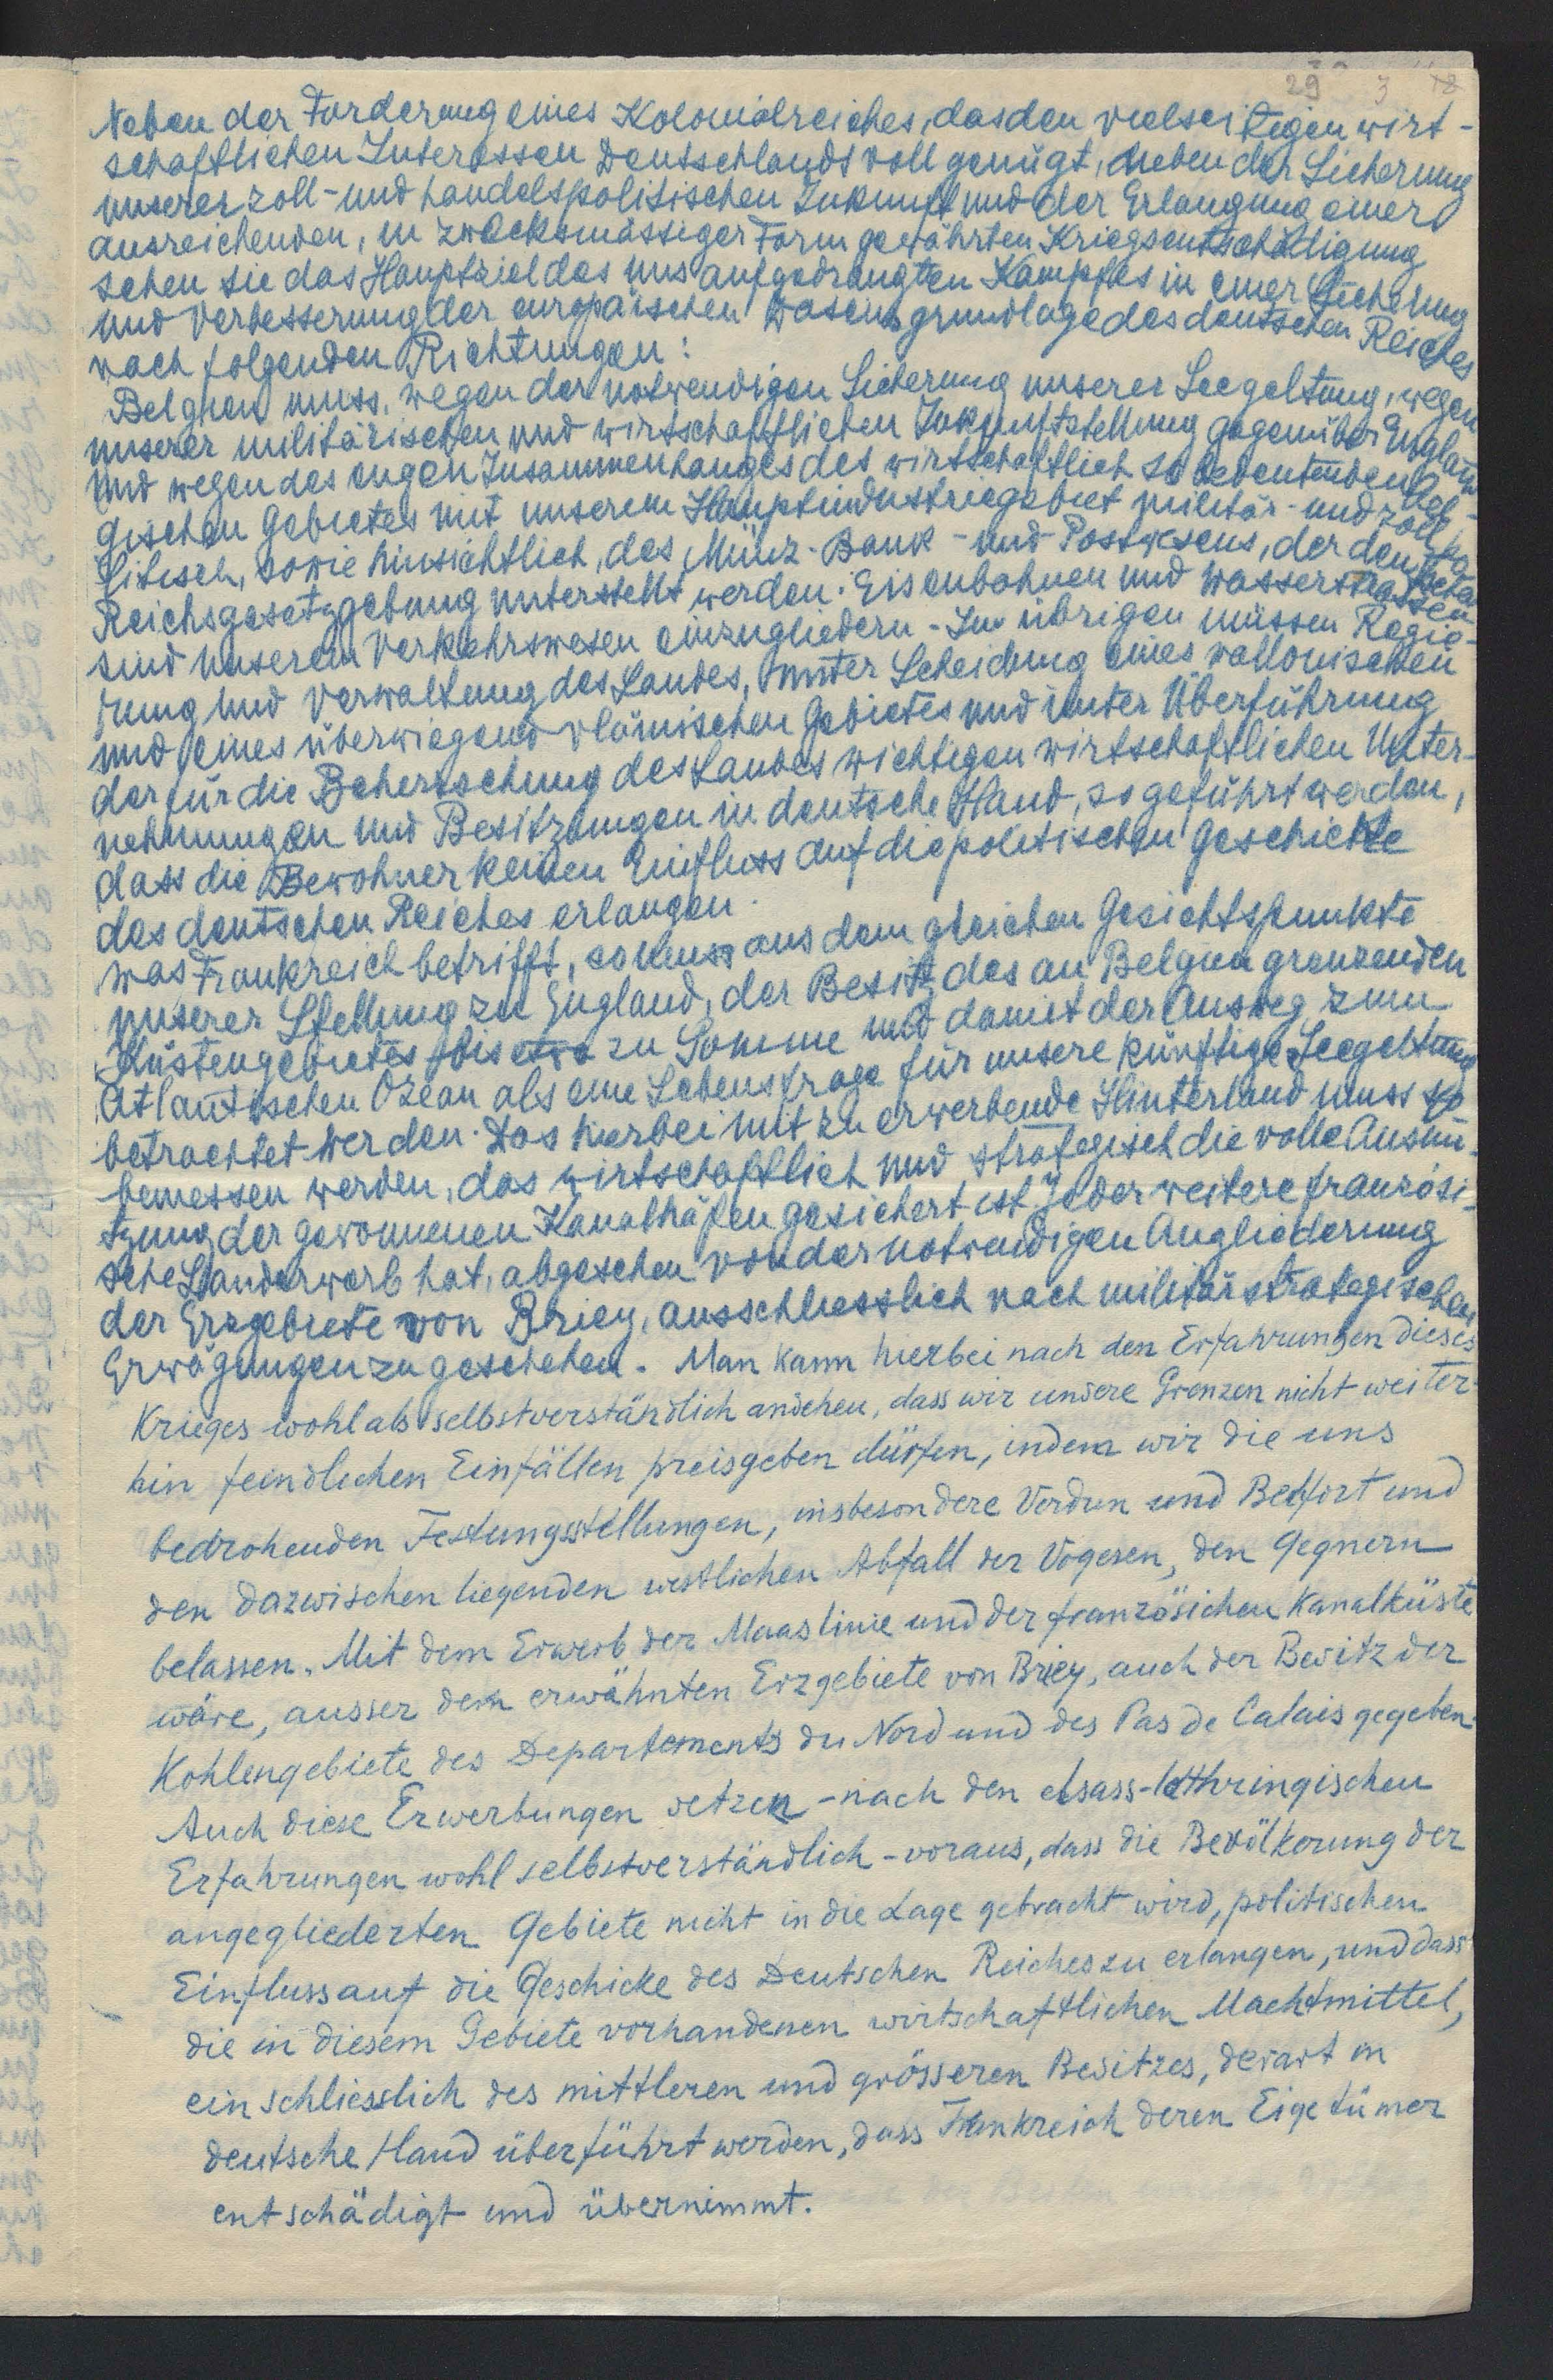 29 3 18
Neben der Forderung eines Kolonialreiches, das den vielseitigen wirt-
schaftlichen Interessen Deutschlands voll genügt, neben der Sicherung
unserer zoll- und handelspolitischen Zukunft und der Erlangung einer
ausreichenden, in zweckmässiger Form gewährten Kriegsentschädigung
sehen sie das Hauptziel des uns aufgedrängten Kampfes in einer Sicherung
und Verbesserung der europäischen Daseinsgrundlage des deutschen Reiches
nach folgenden Richtungen:
Belgien muss, wegen der notwendigen Sicherung unserer Seegeltung, wegen
unserer militärischen und wirtschaftlichen Zukunftstellung gegenüber England
und wegen des engen Zusammenhanges des wirtschaftlich so bedeutenden bel-
gischen Gebietes mit unserem Hauptindustriegebiet militär- und zollpo-
litisch, sowie hinsichtlich, des Münz- Bank- und Postwesens, der deutschen
Reichsgesetzgebung unterstellt werden. Eisenbahnen und Wasserstrassen
sind unserem Verkehrswesen einzugliedern - Im übrigen müssen Regie-
rung und Verwaltung des Landes, unter Scheidung eines wallonischen
und eines überwiegend vlämischen Gebietes und unter Überführung
der für die Beherrschung des Landes wichtigen wirtschaftlichen Unter-
nehmungen und Besitzungen in deutsche Hand, so geführt werden,
dass die Bewohner keinen Einfluss auf die politischen Geschicke
des deutschen Reiches erlangen.
Was Frankreich betrifft, so muss aus dem gleichen Gesichtspunkte
unserer Stellung zu England, der Besitz des an Belgien grenzenden
Küstengebietes bis etwa zu Somme und damit der Ausweg zum
Atlantischen Ozean als eine Lebensfrage für unsere künftige Seegeltung
betrachtet werden. Das hierbei mit zu erwerbende Hinterland muss so
bemessen werden, das wirtschaftlich und strategisch die volle Ausnu-
tzung der gewonnenen Kanalhäfen gesichert ist. Jeder weitere französi-
sche Landerwerb hat, abgesehen von der notwendigen Angliederung
der Erzgebiete von Briey, ausschliesslich nach militärstrategischen
Erwägungen zu geschehen. Man kann hierbei nach den Erfahrungen dieses
Krieges wohl als selbstverständlich ansehen, dass wir unsere Grenzen nicht weiter-
hin feindlichen Einfällen preisgeben dürfen, indem wir die uns
bedrohenden Festungsstellungen, insbesondere Verdun und Belfort und
den dazwischen liegenden westlichen Abfall der Vogesen, den Gegnern
belassen. Mit dem Erwerb der Maaslinie und der französichen Kanalküste
wäre, ausser dem erwähnten Erzgebiete von Briey, auch der Besitz der
Kohlengebiete des Departements du Nord und des Pas de Calais gegeben.
Auch diese Erwerbungen setzen - nach den elsass-lothringischen
Erfahrungen wohl selbstverständlich - voraus, dass die Bevölkerung der
angegliederten Gebiete nicht in die Lage gebracht wird, politischen
Einfluss auf die Geschicke des Deutschen Reiches zu erlangen, und dass
die in diesem Gebiete vorhandenen wirtschaftlichen Machtmittel,
einschliesslich des mittleren und grösseren Besitzes, derart in
deutsche Hand überführt werden, dass Frankreich deren Eigetümer
entschädigt und übernimmt.